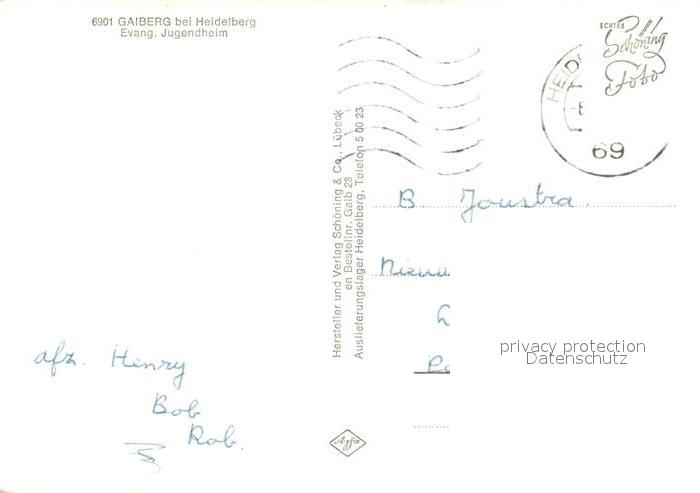 6901 GAIBERG bei Heidelberg
Evang. Jugendheim
ECHTES
Schöning
Foto
HEID
69
Hersteller und Verlag Schöning & Co., Lübeck
en Bestellnr. Gaib 28
Auslieferungslager Heidelberg, Telefon 5 00 23
B. Joustra.
Nieuw
privacy protection
Datenschutz
afz. Henry
Bob
Rob.
Agfa